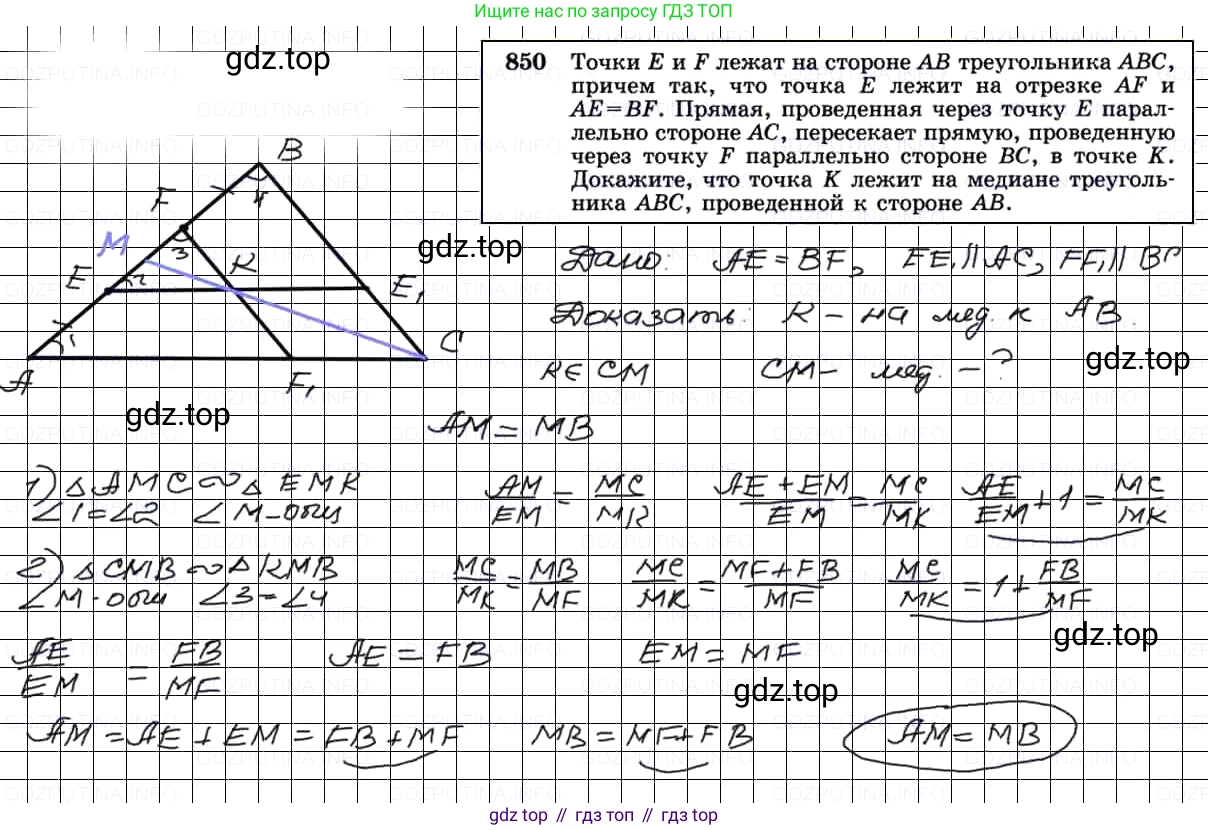 Ищите нас по запросу ГДЗ ТОП
gdz.top
850 Точки E и F лежат на стороне AB треугольника ABC,
причем так, что точка E лежит на отрезке AF и
AE=BF. Прямая, проведенная через точку E парал-
лельно стороне AC, пересекает прямую, проведенную
через точку F параллельно стороне BC, в точке K.
Докажите, что точка K лежит на медиане треуголь-
ника ABC, проведенной к стороне AB.
B
F
4
M
3
K
E
2
E₁
1
C
A
F₁
gdz.top
Дано: AE = BF, EE₁ || AC, FF₁ || BC
Доказать: K – на мед. к AB.
gdz.top
K ∈ CM CM – мед. – ?
gdz.top
AM = MB
1) △ AMC ∾ △ EMK AM/EM = MC/MK AE + EM/EM = MC/MK AE/EM + 1 = MC/MK
∠1 = ∠2 ∠M – общ
2) △ CMB ∾ △ KMB MC/MK = MB/MF MC/MK = MF + FB/MF MC/MK = 1 + FB/MF
∠M - общ ∠3 = ∠4
gdz.top
AE/EM = FB/MF AE = FB EM = MF
gdz.top
AM = AE + EM = FB + MF MB = MF + FB AM = MB
gdz.top // гдз топ // gdz top
GDZPUTINA.INFO